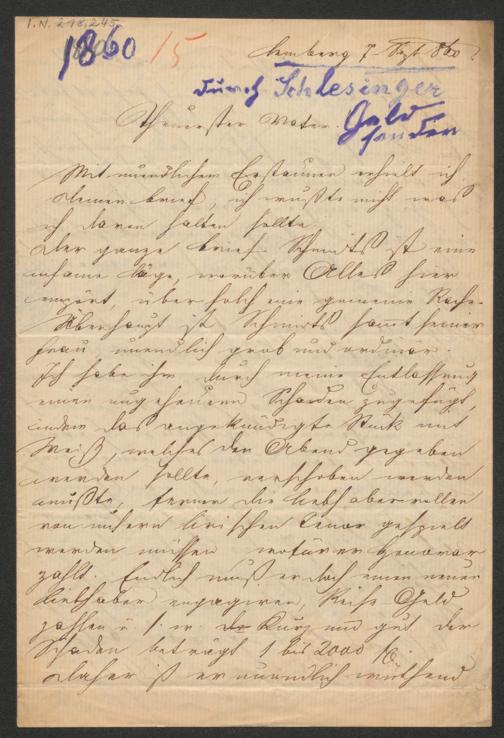 I.N. 218.245
1860 15
Lemberg 7 Sept 860
durch Schlesinger
Geld
senden
Theuerster Vater
Mit unendlichem Erstaunen erhielt ich
deinen brief, ich wußte nicht was
ich davon halten sollte
der ganze brief Schmidts ist eine
infame Lüge, worüber Alles hier
empört, über solch eine gemeine Rache
Überhaupt ist Schmidts sammt seiner
Frau unendlich grob und ordinär.
Ich habe ihm durch meine Entlassung
einen ungeheuern Schaden zugefügt,
indem das angekündigte Stück mit
Weiß, welches den Abend gegeben
werden sollte, verschoben werden
mußte, ferner die Liebhaberrollen
von unserm lirischen Tenor gespielt
werden müssen wofür er Honorar
zahlt. Endlich muß er doch einen neuen
Liebhaber engagiren, Reise Geld
zahlen u. s. w. Kurz und gut der
Schaden beträgt 1 bis 2000
Daher ist er unendlich wüthend